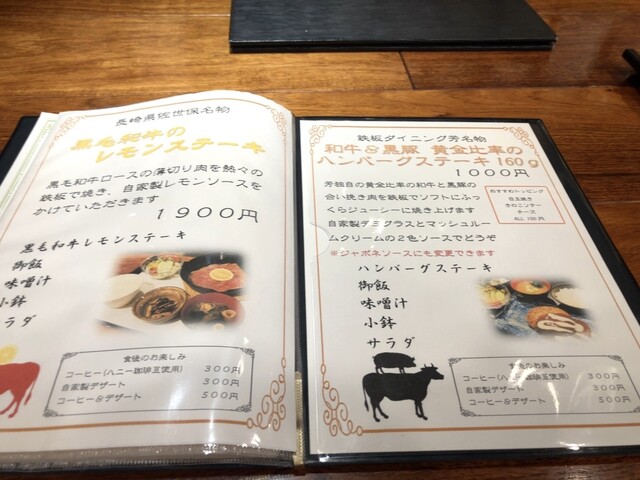 長崎県佐世保名物
黒毛和牛の
レモンステーキ
黒毛和牛ロースの薄切り肉を熱々の
鉄板で焼き、自家製レモンソースを
かけていただきます
1900円
黒毛和牛レモンステーキ
御飯
味噌汁
小鉢
サラダ
食後のお楽しみ
コーヒー(ハニー珈琲豆使用) 300円
自家製デザート 300円
コーヒー&デザート 500円
鉄板ダイニング芳名物
和牛&黒豚 黄金比率の
ハンバーグステーキ160g
1000円
芳独自の黄金比率の和牛と黒豚の
合い挽き肉を鉄板でソフトにふっ
くらジューシーに焼き上げます
自家製デミグラスとマッシュルー
ムクリームの2色ソースでどうぞ
※ジャポネソースにも変更できます
おすすめトッピング
目玉焼き
きのこソテー
チーズ
ALL 100円
ハンバーグステーキ
御飯
味噌汁
小鉢
サラダ
食後のお楽しみ
コーヒー(ハニー珈琲豆使用) 300円
自家製デザート 300円
コーヒー&デザート 500円